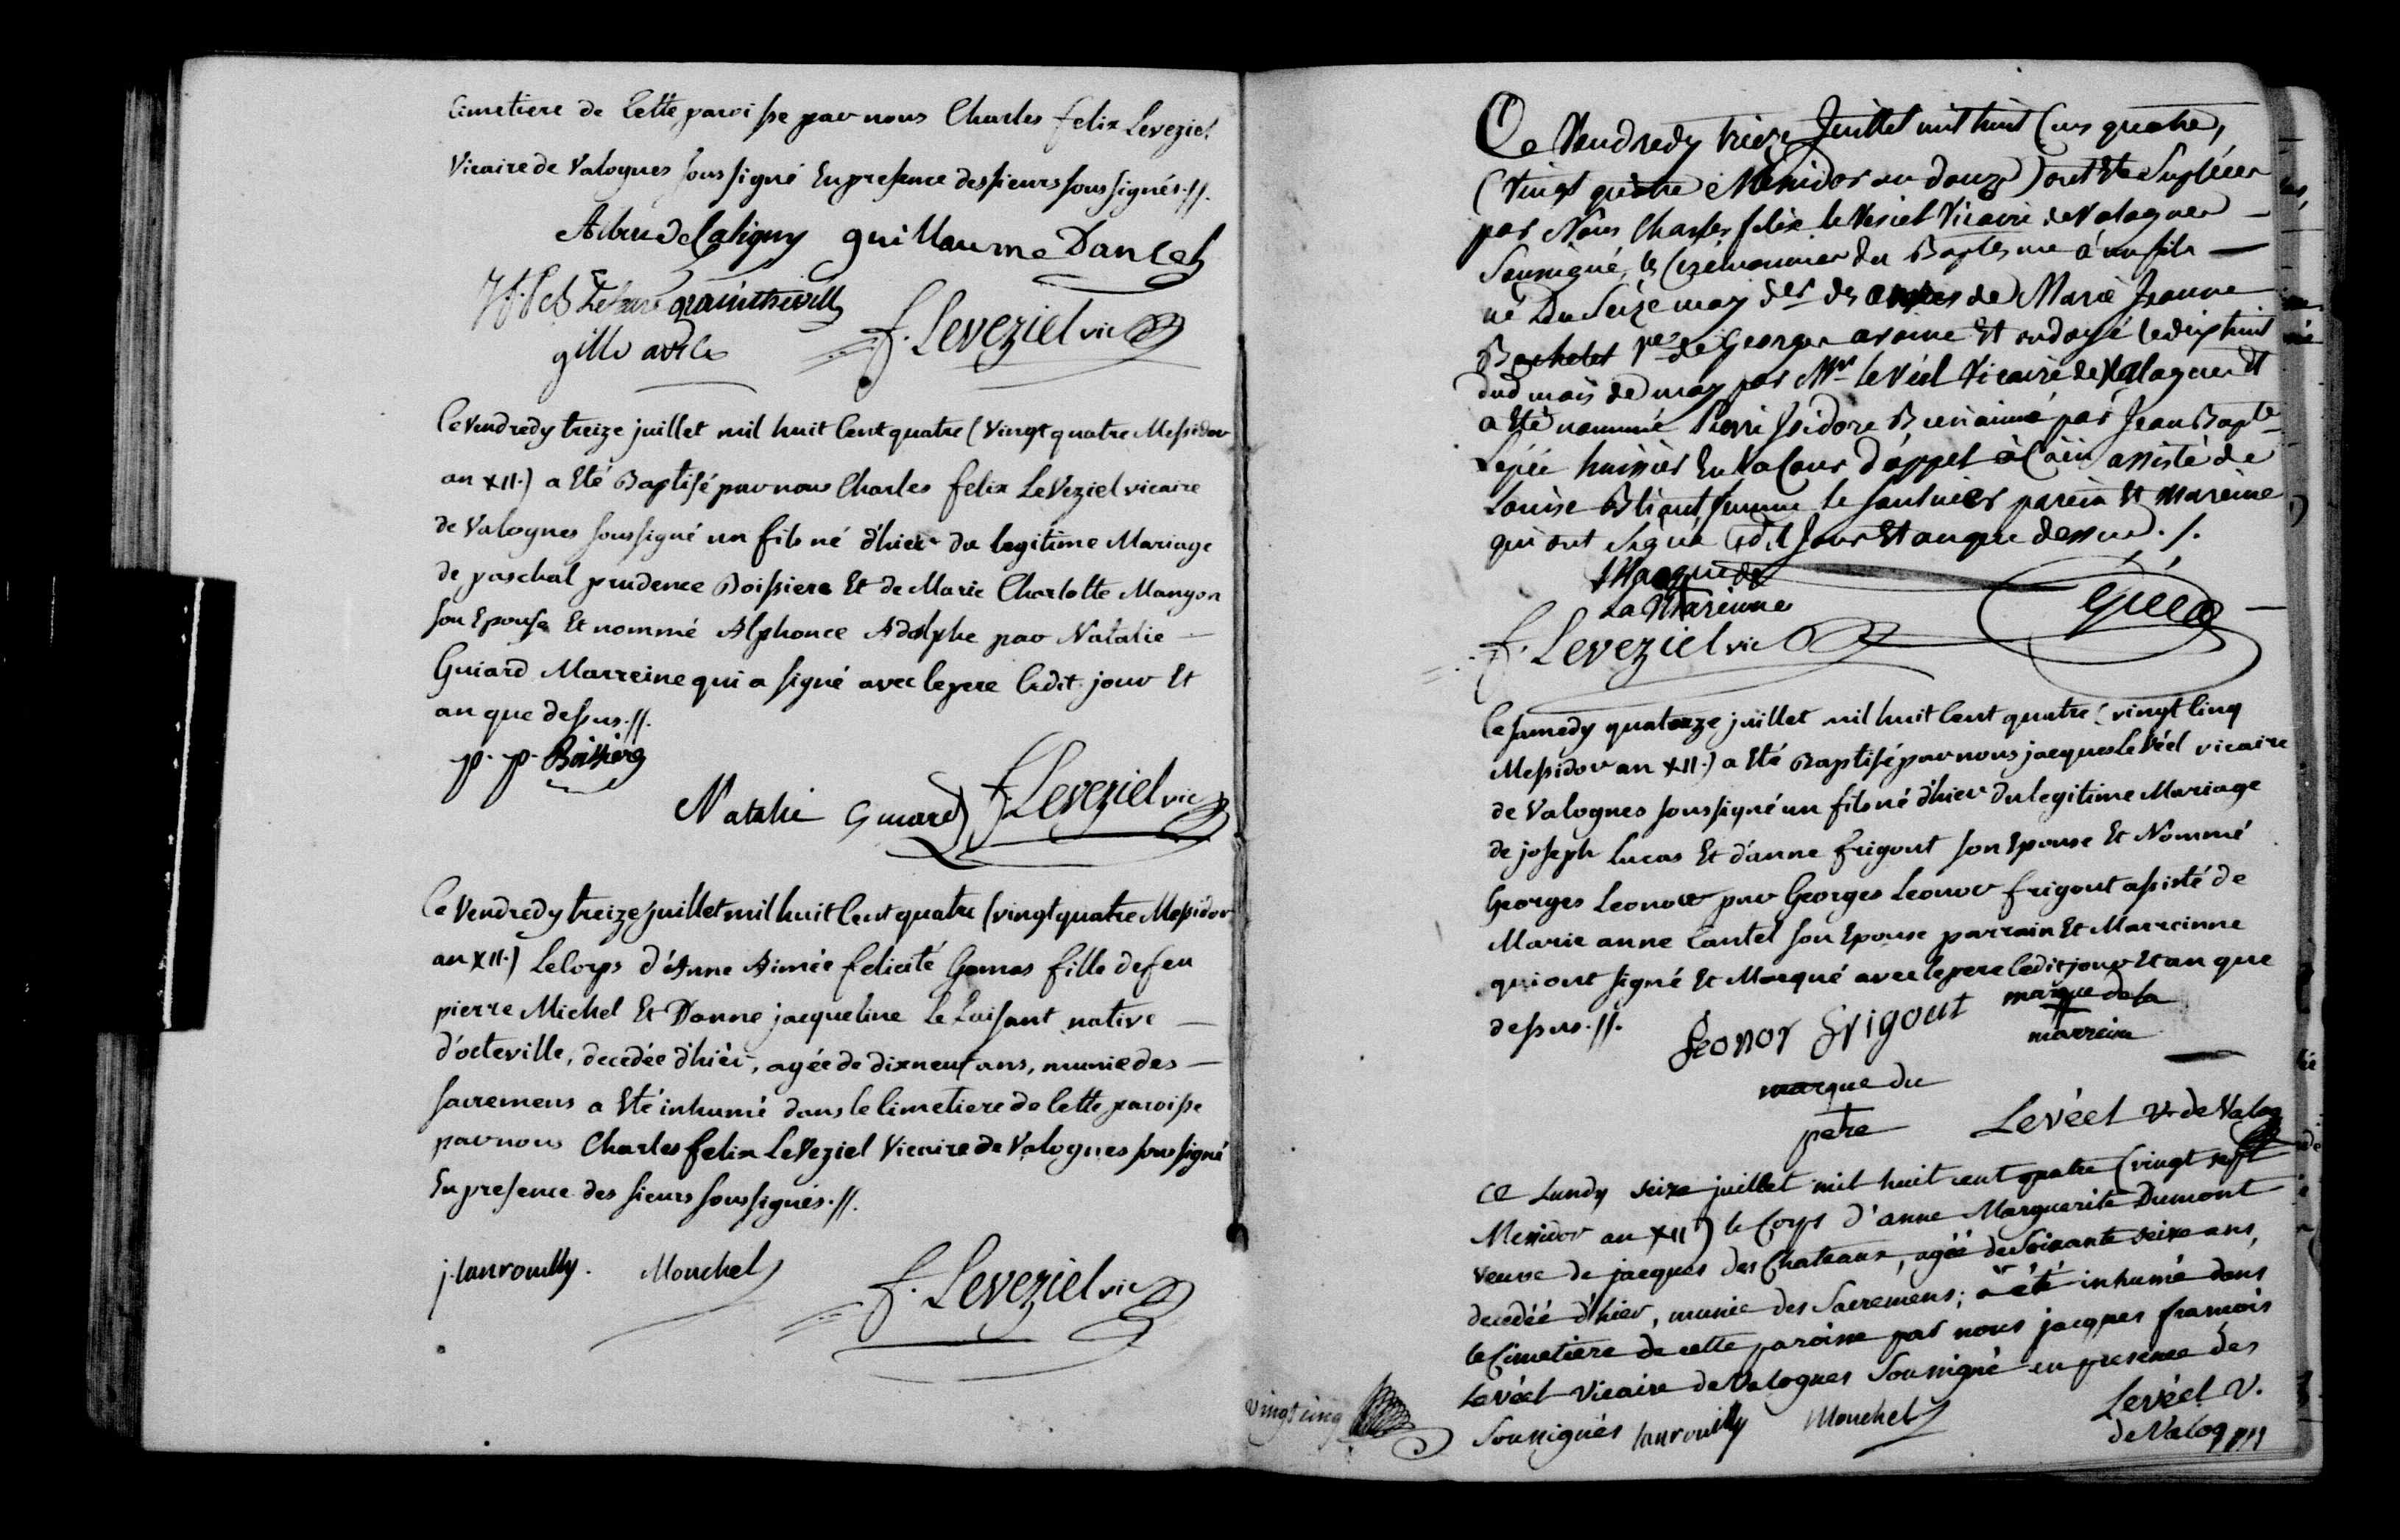 Cimetiere de Cette paroisse par nous Charles felix Leveziel
Vicaire de Valognes soussigné En presence des sieurs soussignés.//.
guillaume Dancel
f. Leveziel vic
Ce Vendredy treize juillet mil huit Cent quatre (Vingt quatre Messidor
an XII.) a Eté Baptisé par nous Charles felix LeVeziel vicaire
de Valognes soussigné un fils né d'hier du legitime Mariage
de paschal prudence Boissiere Et de Marie Charlotte Mangon
son Epouse Et nommé Alphonce Adolphe par Natalie
Guiard Marreine qui a signé avec le pere ledit jour Et
an que dessus.//.
p. p. Boissiere
Natalie Guiard f. Leveziel vic
Ce Vendredy treize juillet mil huit Cent quatre (vingt quatre Messidor
an XII.) Le Corps d'Anne Aimée felicité Gamas fille de feu
pierre Michel Et Danne jacqueline Le Luisant native
d'octeville, decedée d'hier, agée de dixneuf ans, munie des
sacremens a Eté inhumé dans le Cimetiere de Cette paroisse
par nous Charles felix LeVeziel Vicaire de Valognes soussigné
En presence des sieurs soussignés.//.
j. lanrouilly. Mouchel f. Leveziel vic
vingt cinq
Ce Vendredy treize Juillet mil huit Cens quatre,
(Vingt quatre Messidor an douze) ont Ete Supléees
par Nous Charles felix le Vesiel Vicaire de Valognes
Soussigné, les Ceremonies du Baptesme à un fils
né Du Seize may der des œuvres de Marie Jeanne
Bachelet de Georges avoine Et ondoyé le dixhuit
dud mois de may par Mr LeVéel Vicaire de Valognes Et
a Eté nommé Pierre Isidore Bienaimé par Jean Bapte
Lepée huissier En la Cour d'appel à Caen assisté de
Louise Bliaut femme le Saulnier parein Et mareine
qui ont signé led. Jour Et an que dessus./.
Marque de
La Mareinne
Lepée
f. Leveziel vic
Ce samedy quatorze juillet mil huit Cent quatre (vingt Cinq
Messidor an XII.) a Eté Baptisé par nous jacques le Véel vicaire
de Valognes soussigné un fils né d'hier du legitime Mariage
de joseph Lucas Et d'anne frigout son Epouse Et Nommé
Georges Leonor par Georges Leonor frigout assisté de
Marie anne Cantel son Epouse parrain Et Marreinne
qui ont signé Et Marqué avec le pere ledit jour Et an que
dessus.//. Leonor Frigout marque de la
marreine
marque du
pere Levéel v. de Valog
Ce Lundy seize juillet mil huit cent quatre (vingt sept
Messidor an XII) le Corps d'anne Marguerite Dumont
veuve de jacques des Chateaux, agée de Soixante seize ans,
decedée d'hier, munie des Sacremens; a été inhumé dans
le Cimetiere de cette paroisse par nous jacques francois
Levéel Vicaire de Valognes Soussigné en presence des
Soussignés lanrouilly Mouchel Levéel V.
de Valognes